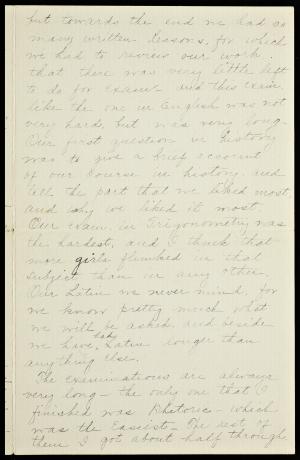 but towards the end we had so
many written lessons, for which
we had to review our work
that there was very little left
to do for exam. and this exam.
like the one in English was not
very hard, but was very long.
Our first question in history
was to give a brief account
of our course in history, and
tell the part that we liked most,
and why we liked it most.
Our exam. in Trigonometry was
the hardest, and I think that
more girls flunked in that
subject than in any other.
Our Latin we never mind, for
we know pretty much what
we will be asked, and beside
we have had Latin longer than
anything else.
The examinations are always
very long - the only one that I
finished was Rhetoric - which
was the Easiest - The rest of
them I got about half through